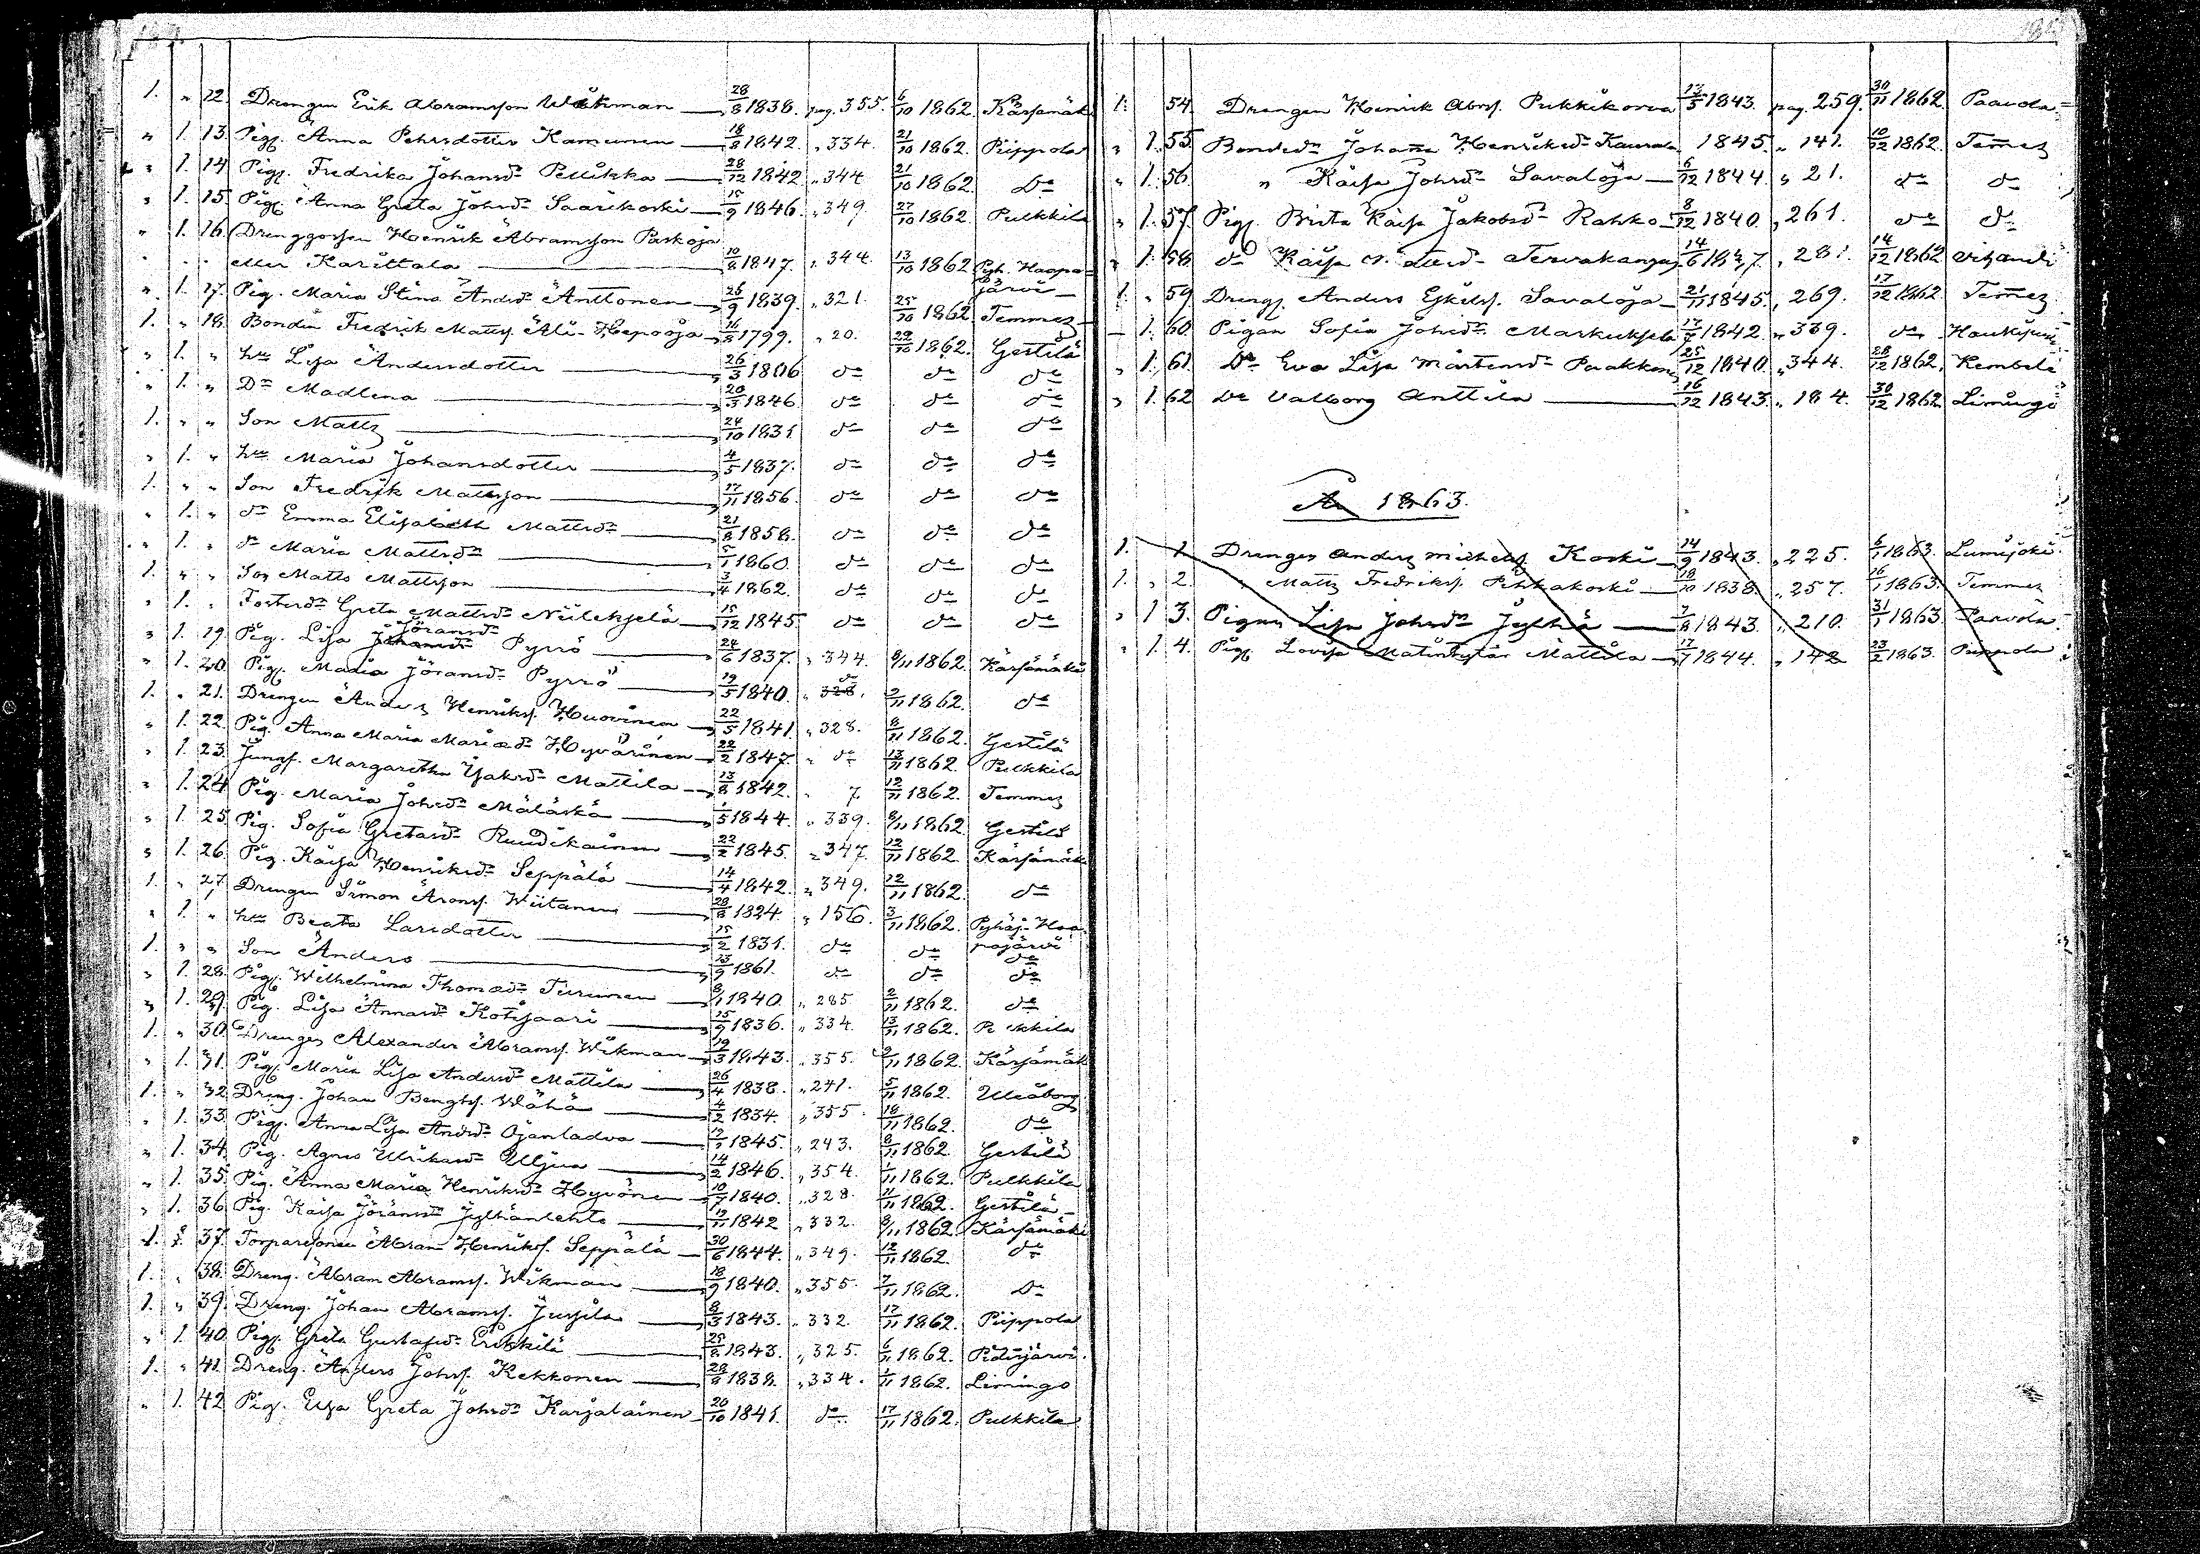 1. " 12. Drengen Erik Abramsson Wikman 28/8 1838. pag. 355. 6/10 1862. Kärsämäki
" 1. 13. Pig. Anna Pehrsdotter Kamunen 18/8 1842. " 334. 21/10 1862. Piippola
" 1. 14. Pig. Fredrika Johansdr Pellikka 28/12 1842 " 344 21/10 1862. Do
" 1. 15. Pig. Anna Greta Johsdr Saarikoski 15/9 1846. " 349. 27/10 1862. Pulkkila
" 1. 16. Drenggossen Henrik Abramsson Paskoja
eller Karittala 10/8 1847. " 344. 13/10 1862 Pyh. Haapa=
järvi
" 1. 17. Pig. Maria Stina Andrsdr Anttonen 26/9 1839. " 321. 25/10 1862. Temmes
1. " 18. Bonden Fredrik Mattss. Ali-Heposja 16/8 1799. " 20. 22/10 1862. Gestilä
" 1. " hu Lisa Andersdotter 26/3 1806 do do do
" 1. " Dr Madlena 20/3 1846 do do do
1. " " Son Matts 24/10 1831 do do do
" 1. " hu Maria Johansdotter 4/5 1837. do do do
1. " " Son Fredrik Mattsson 17/11 1856. do do do
" 1. " dr Emma Elisabeth Mattsdr 21/8 1858. do do do
" 1. " dr Maria Mattsdr 5/1 1860. do do do
1. " " Son Matts Mattsson 3/4 1862. do do do
" 1. " Fosterdr Greta Mattsdr Niilekselä 15/12 1845 do do do
" 1. 19. Pig. Lisa Göransdr Pyrrö 24/6 1837. " 344. 8/11 1862. Kärsämäki
" 1. 20. Pig. Maria Göransdr Pyrrö 19/5 1840. " do 9/11 1862. do
1. " 21. Drengen Anders Henrikss. Huovinen 22/5 1841. " 328. 8/11 1862. Gestilä
" 1. 22. Pig. Anna Maria Mariaedr Hyvärinen 22/2 1847. " do 13/11 1862. Pulkkila
" 1. 23. Jungf. Margaretha Isaksdr Mattila 13/8 1842. " 7. 12/11 1862. Temmes
" 1. 24. Pig. Maria Johsdr Mäläskä 1/5 1844. " 339. 8/11 1862. Gestilä
" 1. 25. Pig. Sofia Gretasdr Ruudikainen 22/2 1845. " 347. 12/11 1862. Kärsämäki
" 1. 26. Pig. Kaisa Henriksdr Seppälä 14/4 1842. " 349. 12/11 1862. do
1. " 27. Drengen Simon Aronss. Wiitanen 28/8 1824. " 156. 3/11 1862. Pyhäj. Haa
" 1. " hu Beata Larsdotter 15/2 1831. do do pajärvi do
1. " " Son Anders 13/9 1861. do do do
" 1. 28. Pig. Wilhelmina Thomasdr Tirunen 8/1 1840. " 285. 2/11 1862. do
" 1. 29. Pig. Lisa Annasdr Kotisaari 15/9 1836. " 334. 13/11 1862. Pulkkila
1. " 30. Drengen Alexander Abramss. Wikman 19/3 1843. " 355. 9/11 1862. Kärsämäki
" 1. 31. Pig. Maria Lisa Andersdr Mattila 26/4 1838. " 241. 5/11 1862. Uleåborg
1. " 32. Dreng. Johan Bengtss. Wähä 4/2 1834. " 355. 18/11 1862. do
" 1. 33. Pig. Anna Lisa Andrsdr Ojanladva 12/1 1845. " 243. 8/11 1862. Gestilä
" 1. 34. Pig. Agnes Ulrikasdr Uljua 14/2 1846. " 354. 1/11 1862. Pulkkila
" 1. 35. Pig. Anna Maria Henriksdr Hyvönen 10/7 1840. " 328. 11/11 1862. Gestilä
" 1. 36. Pig. Kaisa Göransdr Jylhänlehto 19/11 1842 " 332. 8/11 1862. Kärsämäki
1. " 37. Torparesonen Abram Henrikss. Seppälä 30/6 1844. " 349. 12/11 1862. do
1. " 38. Dreng. Abram Abramss. Wikman 18/9 1840. " 355. 7/11 1862. Do
1. " 39. Dreng. Johan Abramss. Jussila 8/3 1843. " 332. 17/11 1862. Piippola
" 1. 40. Pig. Greta Gustafsdr Erkkilä 25/8 1843. " 325. 6/11 1862. Pidisjärvi.
1. " 41. Dreng. Anders Johss. Kekkonen 28/8 1838. " 334. 1/11 1862. Limingo
" 1. 42 Pig. Eva Greta Johsdr Karjalainen 20/10 1841. do 17/11 1862. Pulkkila
1. 54. Drengen Henrik Abrss. Pukkikorva 13/5 1843. pag 259. 30/11 1862. Paavola
" 1. 55. Bondedr Johanna Henriksdr Kaurala 1845. " 141. 10/12 1862. Temmes
" 1. 56. " Kaisa Johsdr Savaloja 6/12 1844. " 21. do do
" 1. 57. Pig. Brita Kaisa Jakobsdr Rahko 8/12 1840. " 261. do do
" 1. 58. do Kaisa Tervakangas 14/6 1847. " 281. 14/12 1862 Vihandi
1. " 59. Drengs. Anders Eskilss. Savaloja 21/11 1845. " 269. 17/12 1862 Temmes
" 1. 60. Pigan Sofia Johsdr Markuksela 17/7 1842. " 339. do Haukipudas
" 1. 61. Do Eva Lisa Mårtensdr Paakkonen 25/12 1840. " 344. 28/12 1862. Kembele
" 1. 62. Do Valborg Anttila 16/12 1843. " 184. 30/12 1862. Limingo
År 1863.
1. 1. Drengen Anders Michelss. Koski 14/9 1843. " 225. 6/1 1863. Lumijoki
1. " 2. " Matts Fredrikss. Pihkakoski 18/10 1838. " 257. 16/1 1863. Temmes
" 1. 3. Pigan Lisa Johsdr Jylhä 7/8 1843. " 210. 31/1 1863. Paavola
" 1. 4. Pig. Lovisa Matintytär Mattila 17/7 1844. " 142 23/2 1863. Piippola